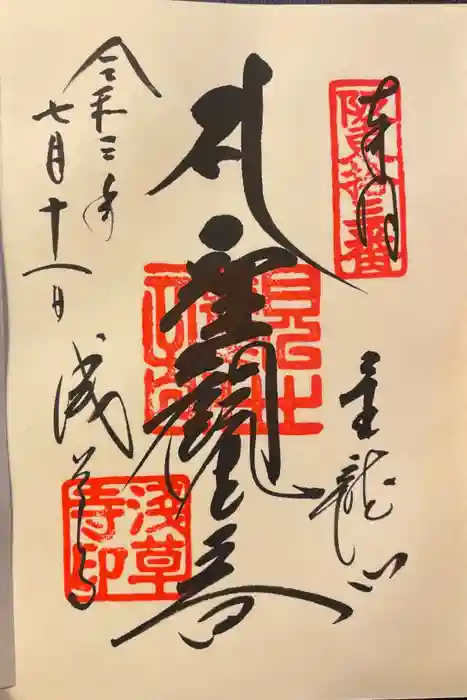 奉拝
坂東拾三番
金龍山
聖観世音
浅草寺
浅草寺印
令和三年
七月十一日